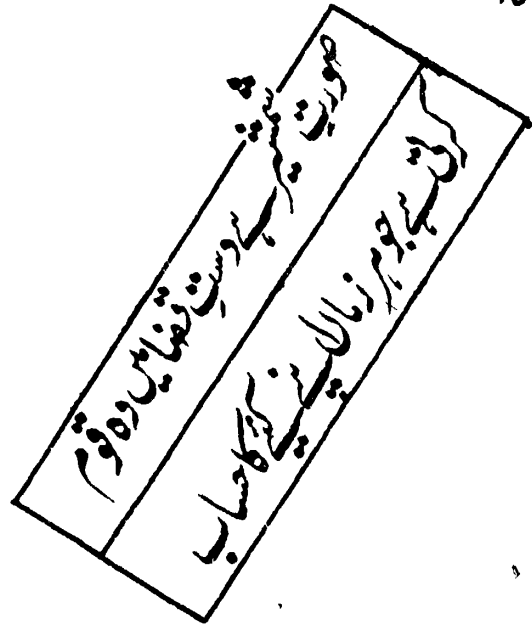 صورتِ شمشیر ہے دستِ قضا میں وہ قوم
کرتی ہے جو ہر زماں اپنے عمل کا حساب